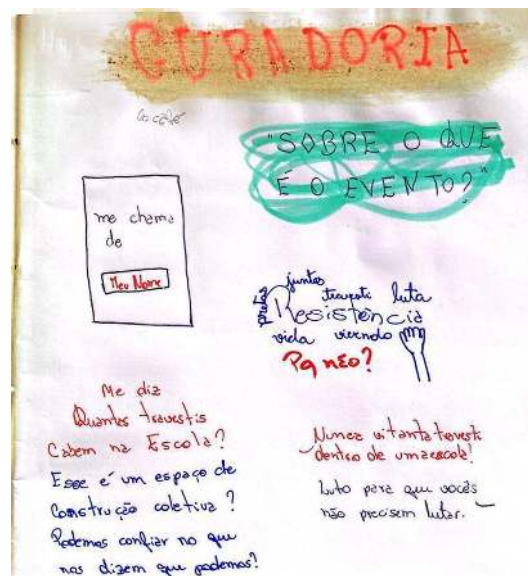 CURADORIA
"SOBRE O QUE
É O EVENTO?"
me chama
de
Meu Nome
juntas
pretas travesti luta
Resistência
vida vivendo
Pq não?
Me diz
Quantas travestis
Cabem na Escola?
Esse é um espaço de
Construção coletiva?
Podemos confiar no que
nos dizem que podemos?
Nunca vi tanta travesti
dentro de uma escola!
Luto para que vocês
não precisem lutar.